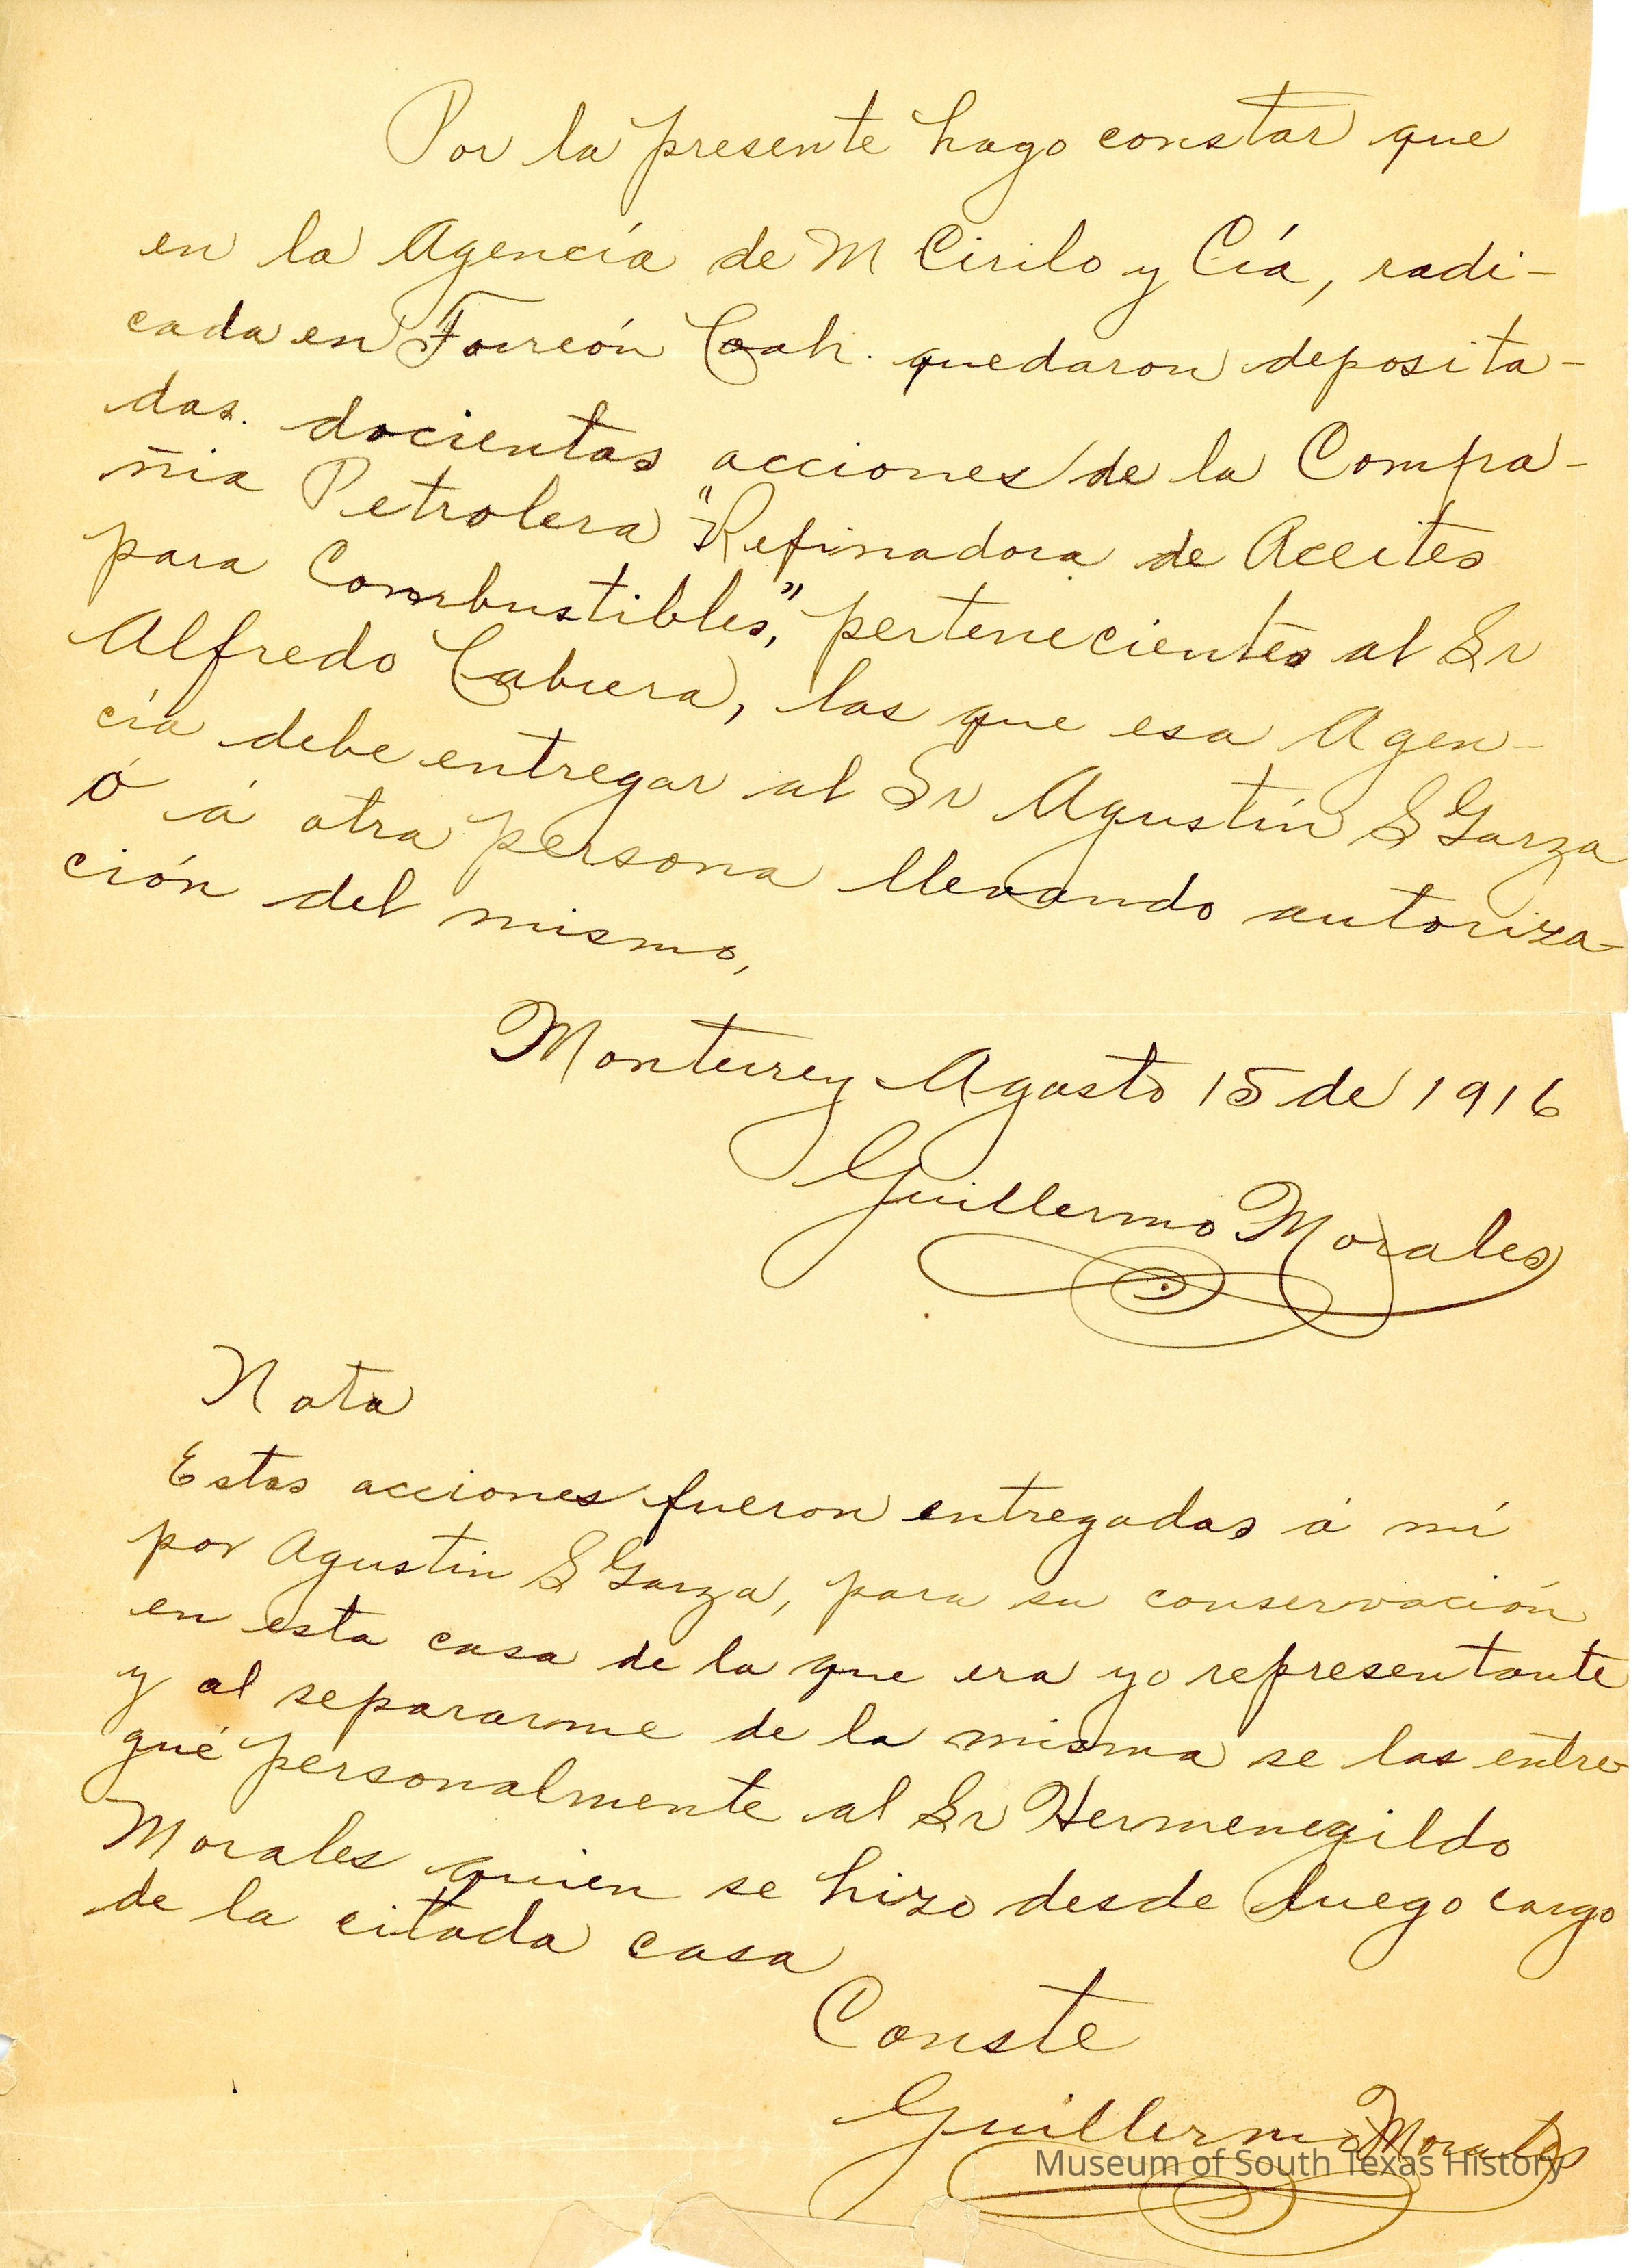 Por la presente hago constar que
en la Agencía de M Cirilo y Cía, radi-
cada en Torreón Coah. quedaron deposita-
das. docientas acciones de la Compa-
ñia Petrolera "Refinadora de Aceites
para Combustibles," pertenecientes al Sr
Alfredo Cabrera, las que esa Agen-
cía debe entregar al Sr Agustín S Garza
ó á otra persona llevando autoriza-
ción del mismo,
Monterrey Agosto 15 de 1916
Guillermo Morales
Nota
Estas acciones fueron entregadas á mí
por Agustin S Garza, para su conservación
en esta casa de la que era yo representante
y al separarme de la misma se las entre-
gué personalmente al Sr Hermenegildo
Morales quien se hizo desde luego cargo
de la citada casa
Conste
Guillermo Morales
Museum of South Texas History